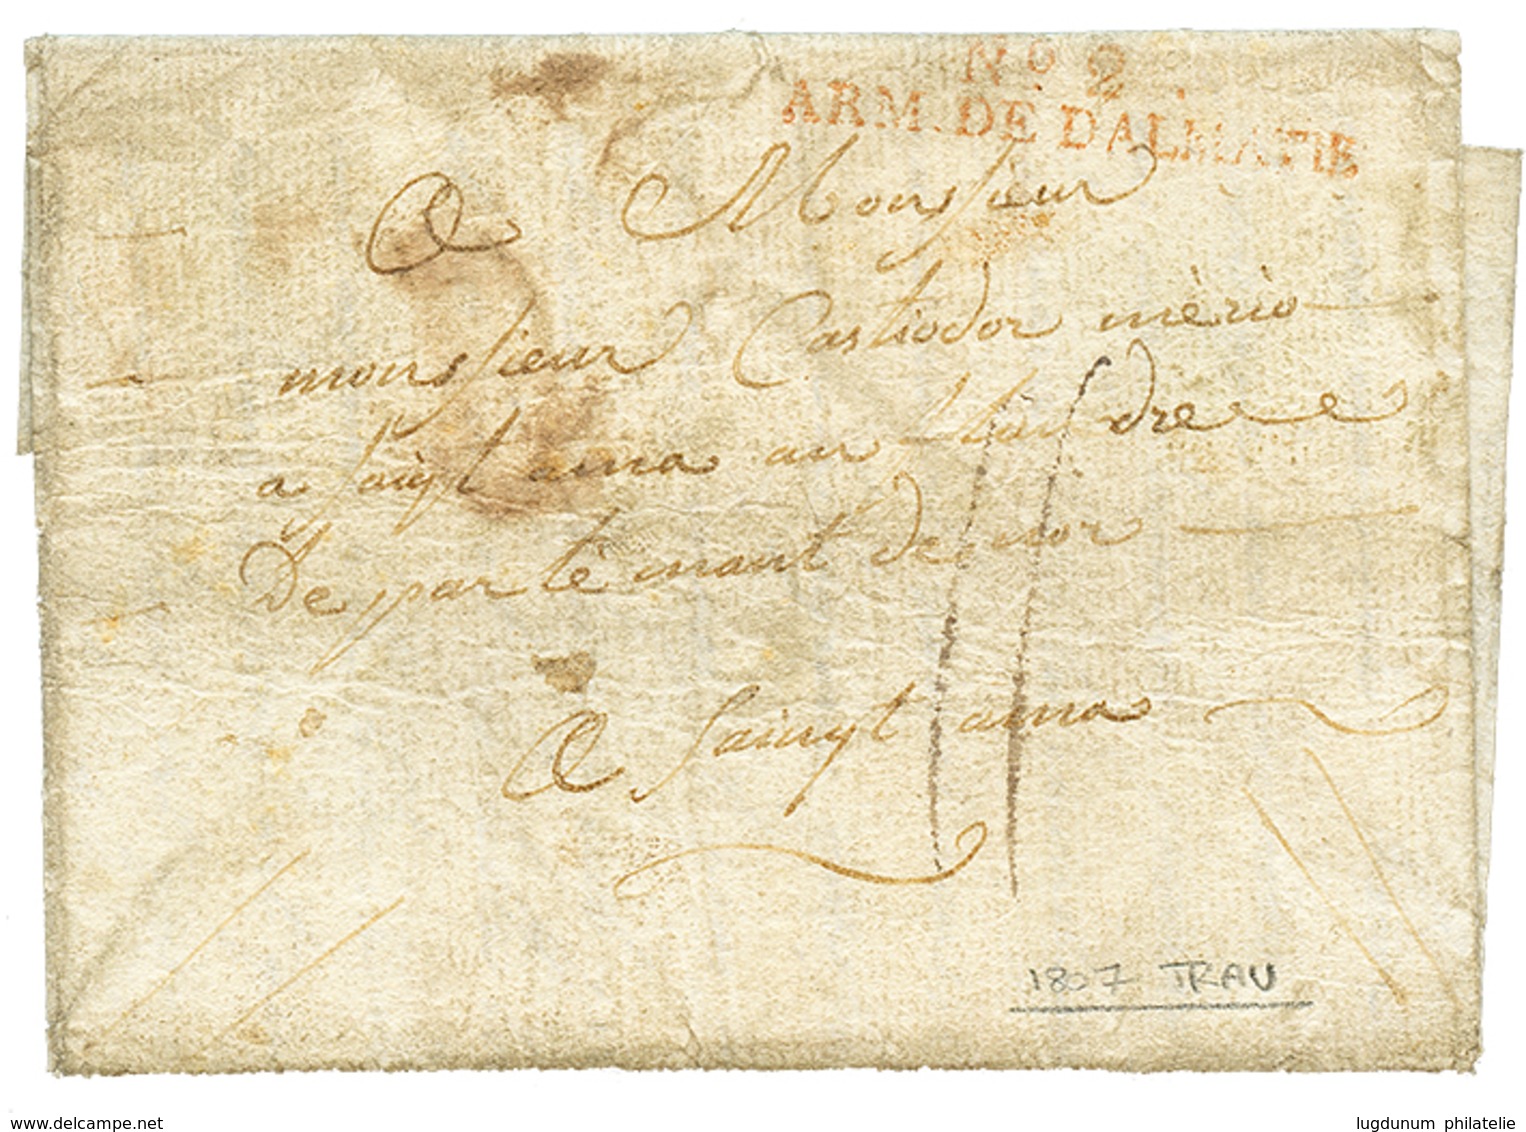 No 2.
ARM. DE DALMATIE
A Monsieur
monsieur Castiodor mério
a saigt ama au flandre
De partémant de nor
A saingt ama
11
1807 TRAU
www.delcampe.net
lugdunum philatelie